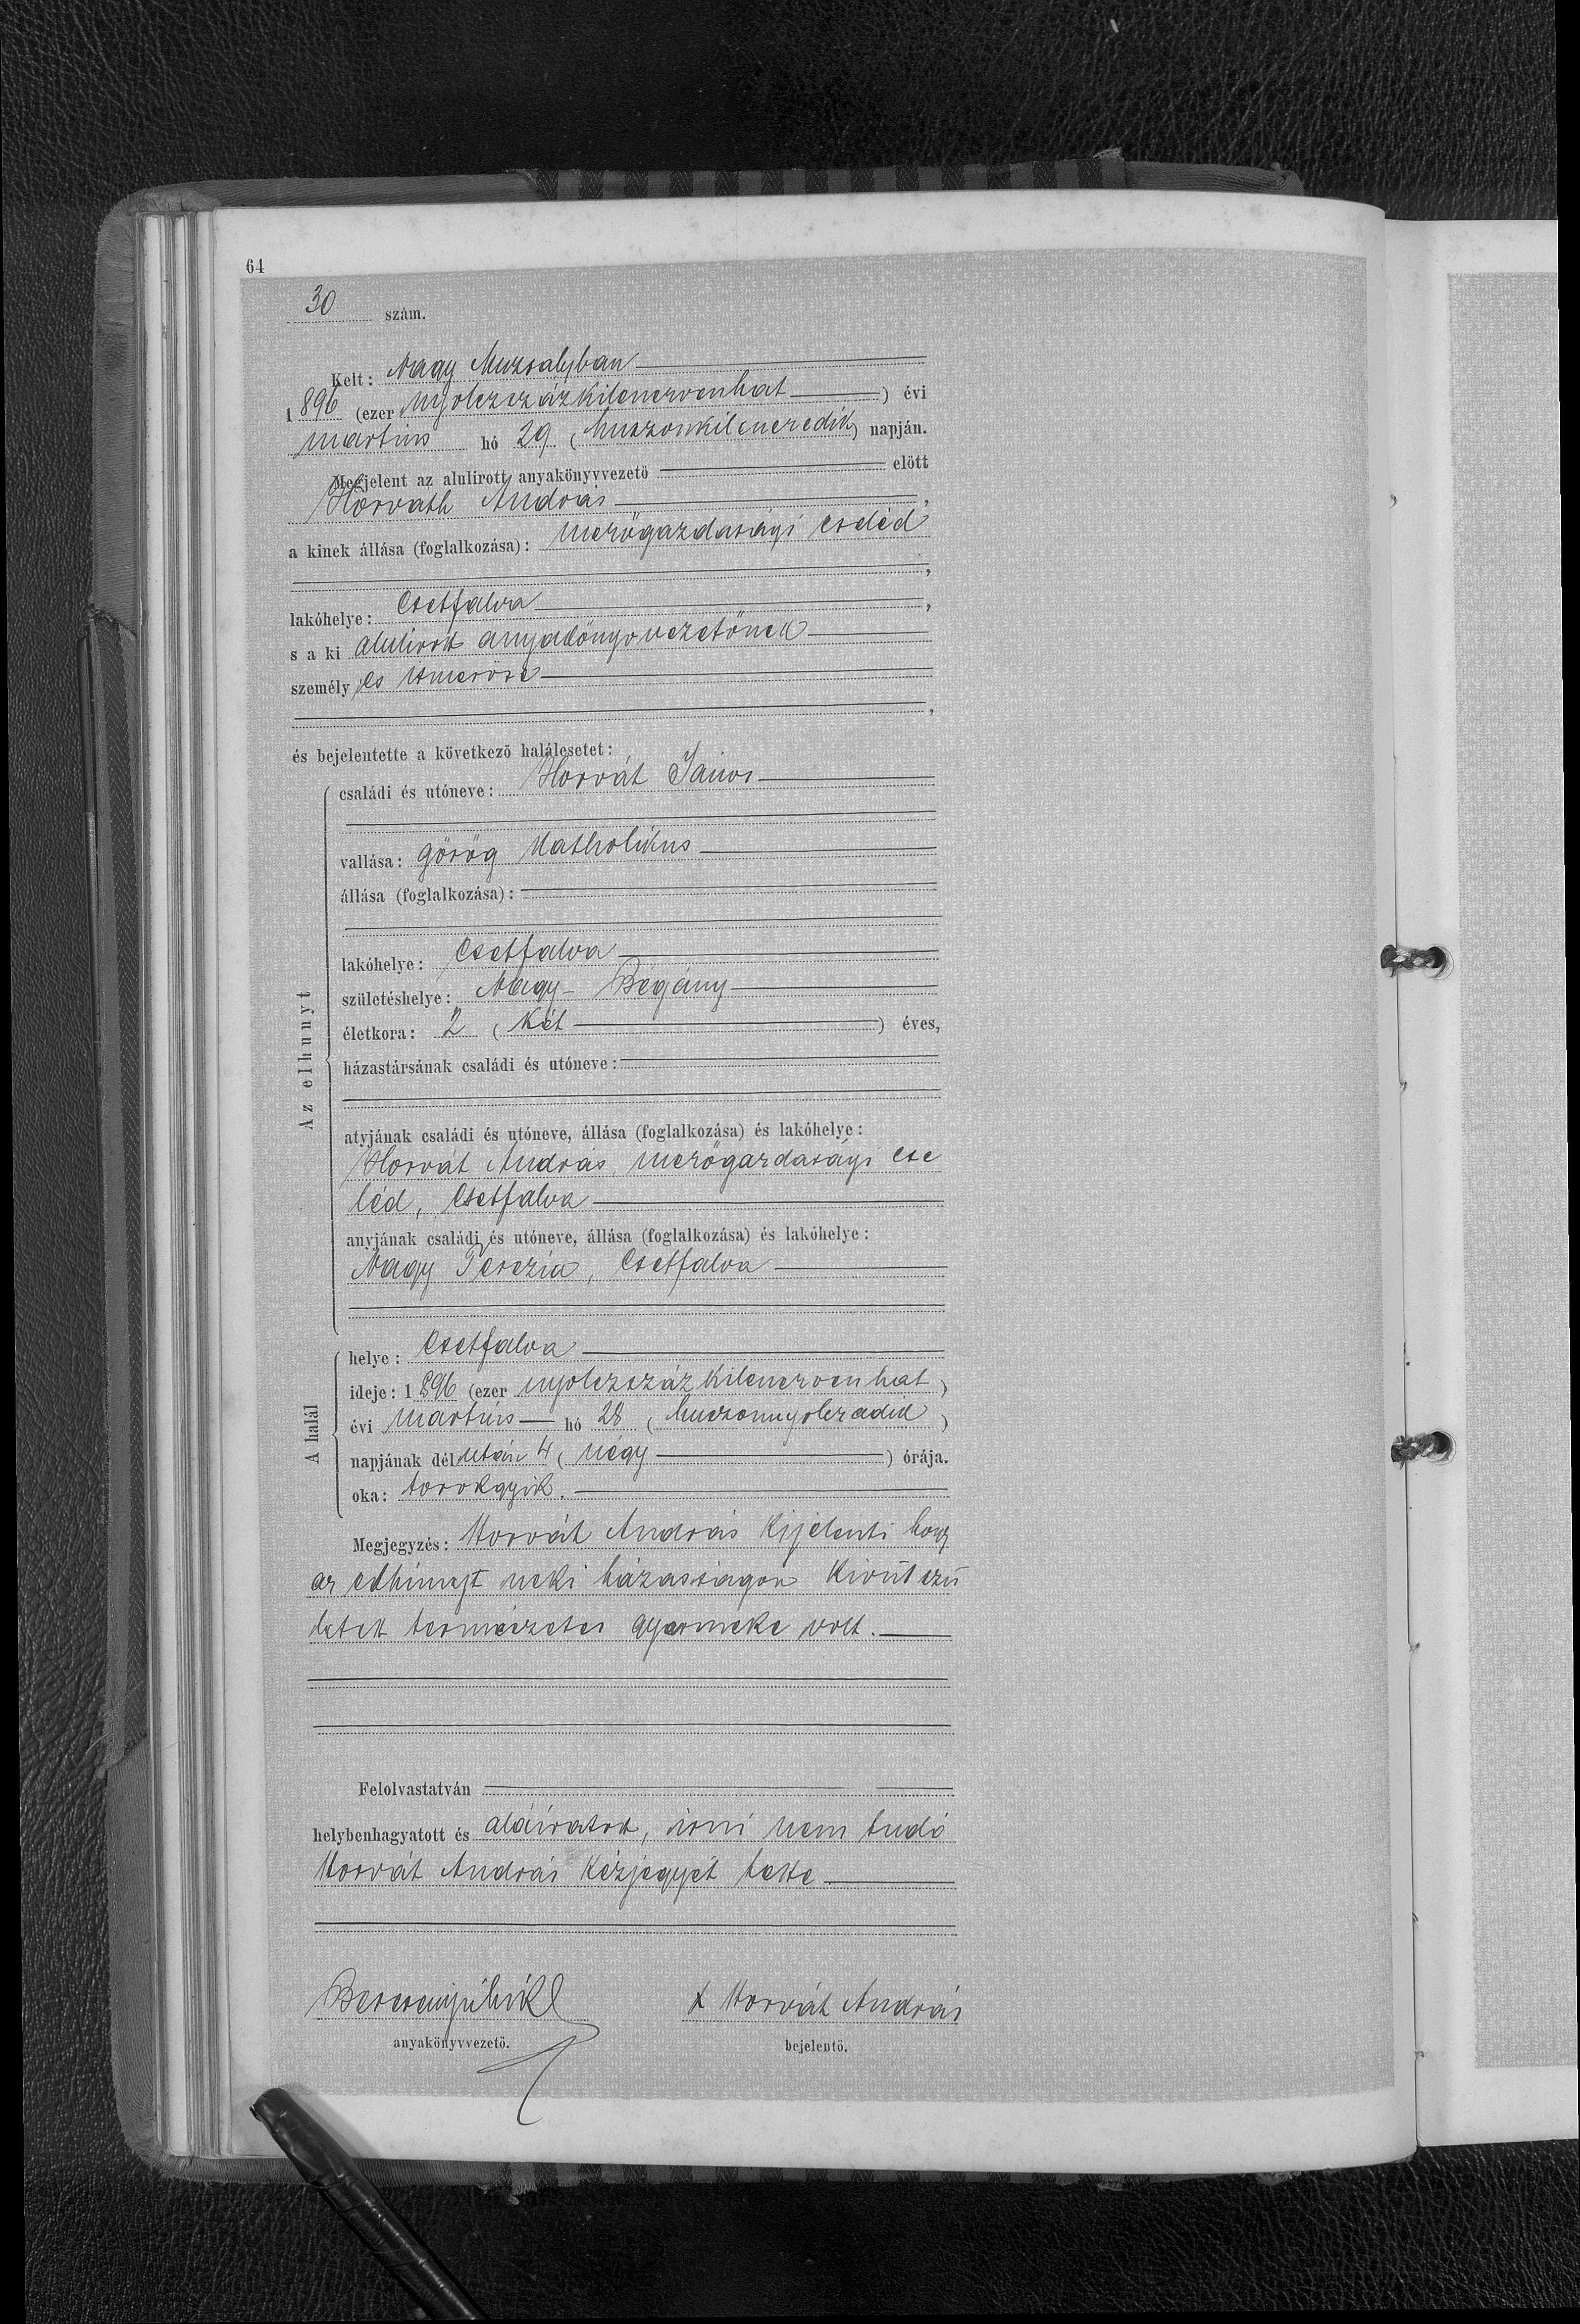 64
30 szám.
Kelt: Nagy Muzsalyban
1896 (ezer nyolczszázkilenczvenhat) évi
martius hó 29 (huszonkilenczedik) napján.
Megjelent az alulírott anyakönyvvezető előtt
Horváth András,
a kinek állása (foglalkozása): mezőgazdasági cseléd
,
lakóhelye: Csetfalva,
s a ki alulirott anyakönyvvezetőnek
személyes ismerőse
,
és bejelentette a következő halálesetet:
Az elhunyt
családi és utóneve: Horvát János
vallása: görög katholikus
állása (foglalkozása):
lakóhelye: Csetfalva
születéshelye: Nagy-Bégány
életkora: 2 (két) éves,
házastársának családi és utóneve:
atyjának családi és utóneve, állása (foglalkozása) és lakóhelye:
Horvát András, mezőgazdasági cse
léd, Csetfalva
anyjának családi és utóneve, állása (foglalkozása) és lakóhelye:
Nagy Terézia, Csetfalva
A halál
helye: Csetfalva
ideje: 1896 (ezer nyolczszázkilenczvenhat)
évi martius hó 28 (huszonnyolczadik)
napjának délután 4 (négy) órája.
oka: torokgyik.
Megjegyzés: Horvát András kijelenti hogy
az elhunyt neki házasságon kivül szü
letett természetes gyermeke volt.
Felolvastatván
helybenhagyatott és aláiratott, irni nem tudó
Horvát András kézjegyét tette
anyakönyvvezető.
x Horvát András
bejelentő.